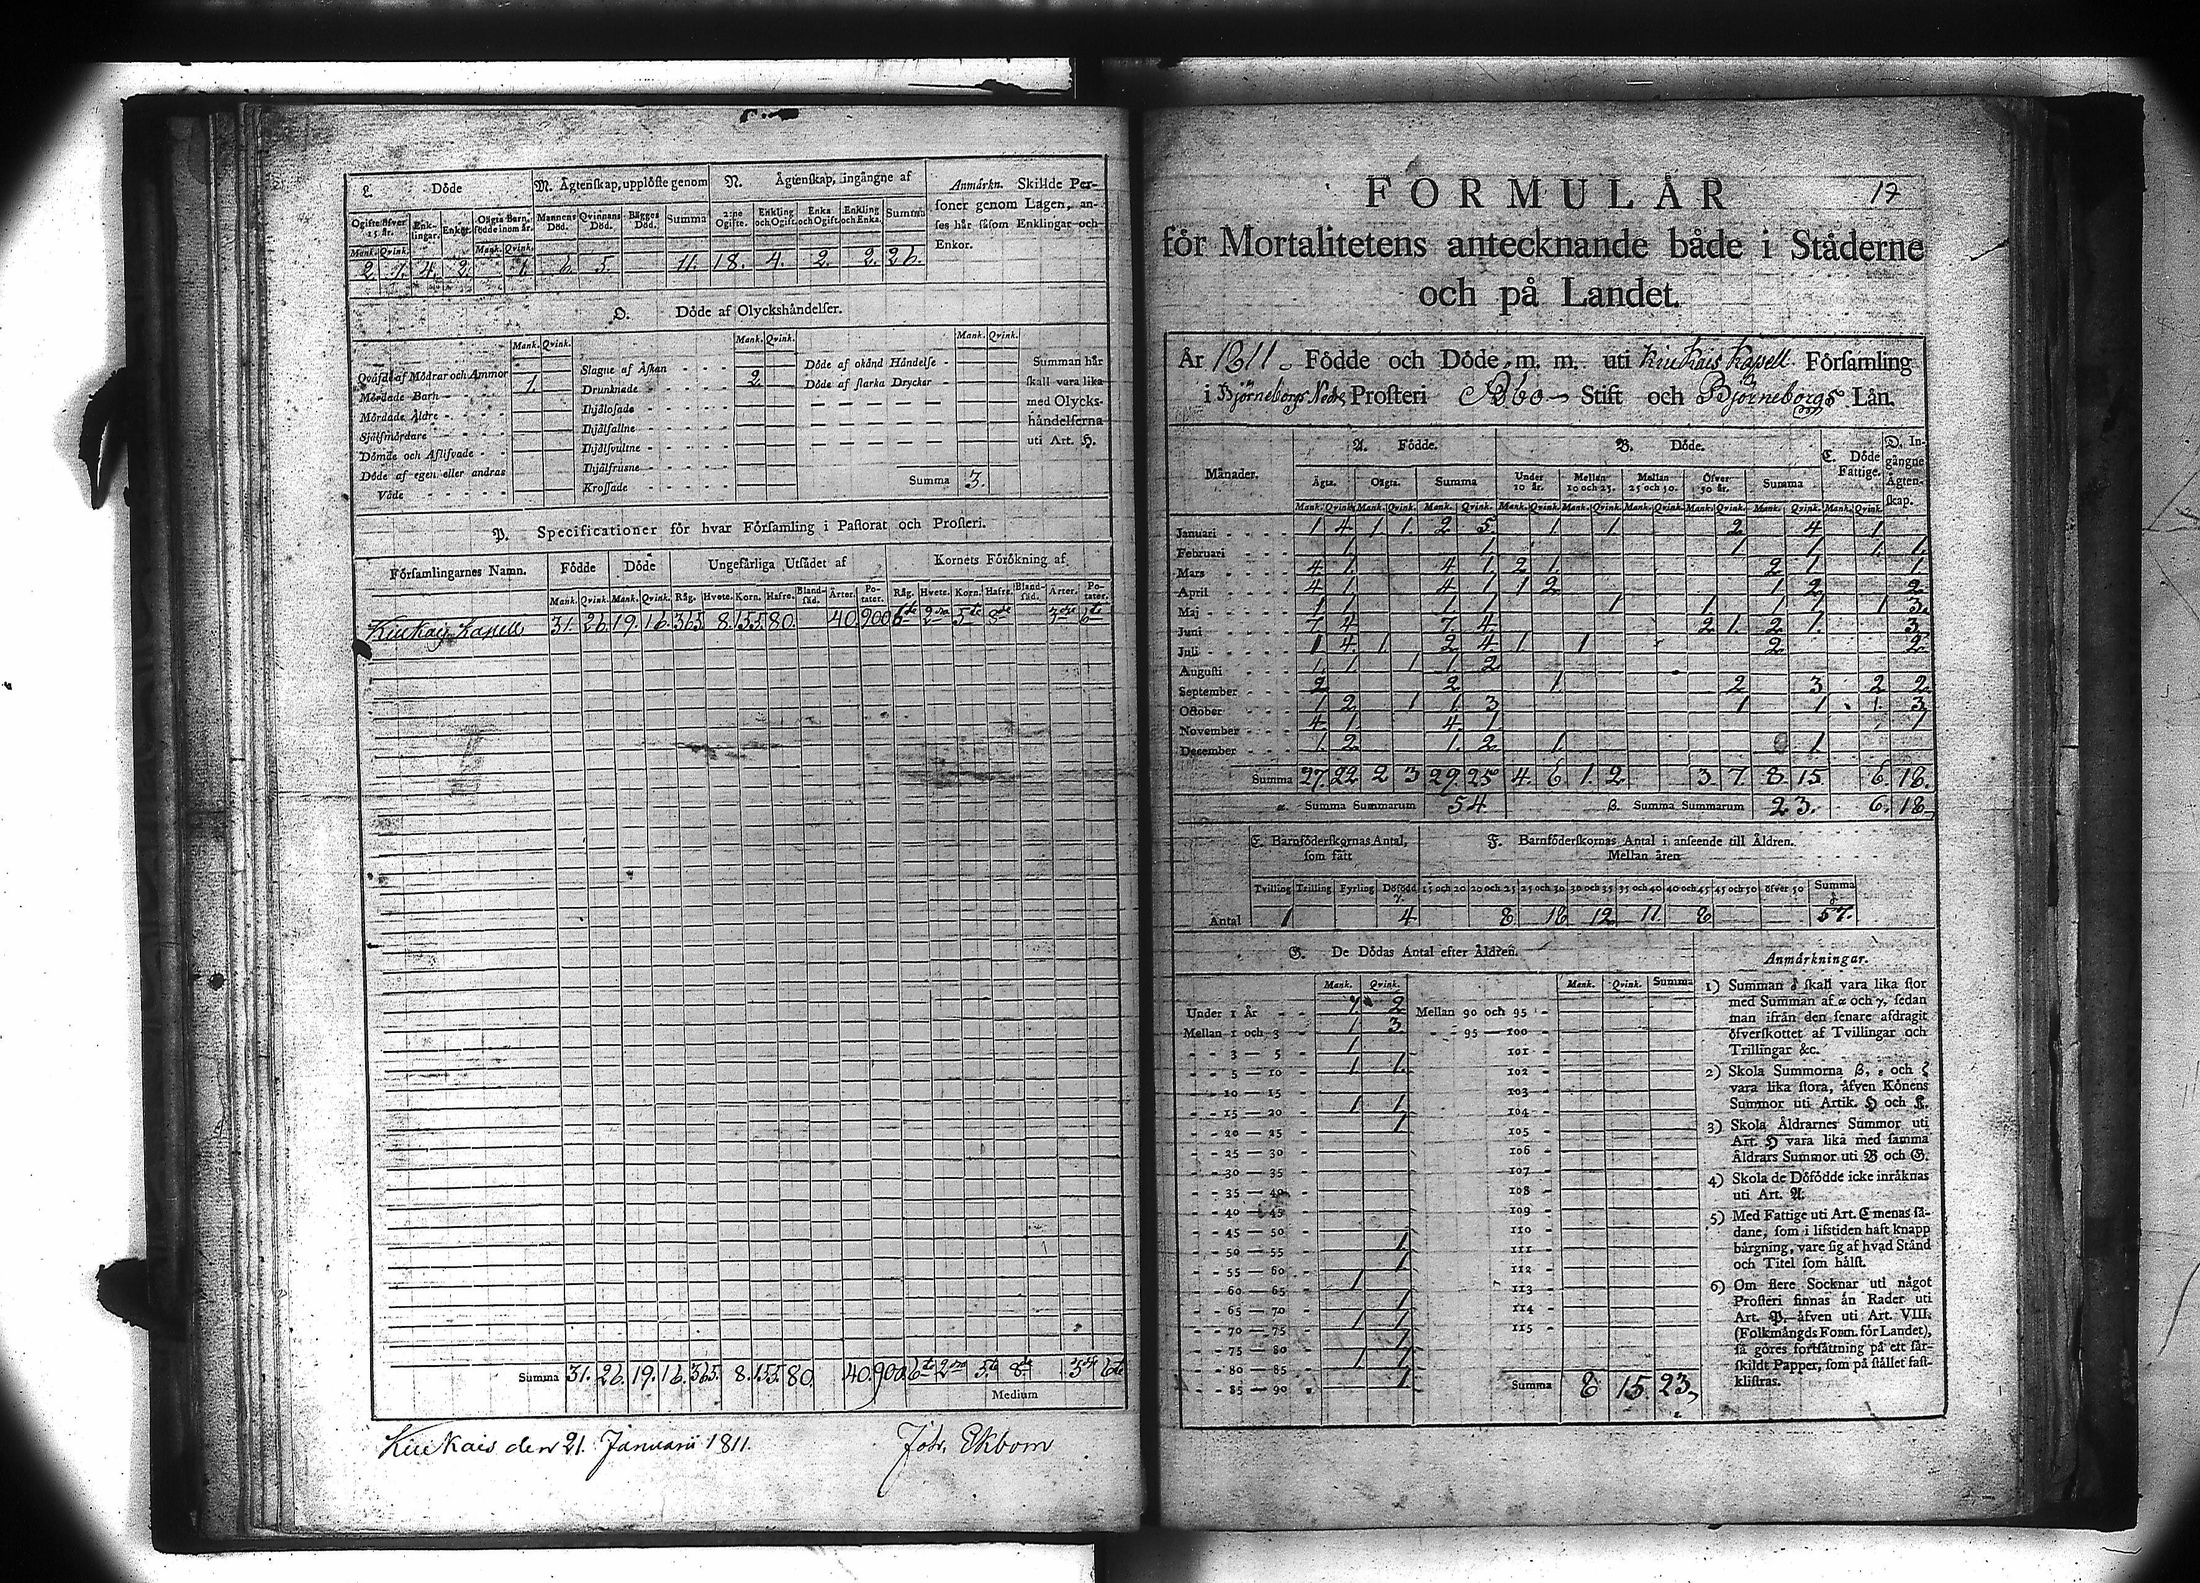 L. Döde
M. Ägtenskap, upplöste genom
N. Ägtenskap, ingångne af
Anmärkn. Skillde Personer genom Lagen, anses här såsom Enklingar och Enkor.
Ogifte öfver 15 år. Enklingar. Enkor. Oägta Barn, födde inom år. Mannens Död. Qvinnans Död. Bägges Död. Summa 2:ne Ogifte. Enkling och Ogift. Enka och Ogift. Enkling och Enka. Summa
Mank. Qvink. Mank. Qvink.
2. 1. 4. 2. 1. 6. 5. 11. 18. 4. 2. 2. 26.
O. Döde af Olyckshändelser.
Mank. Qvink. Mank. Qvink. Mank. Qvink.
Qväfde af Mödrar och Ammor 1.
Mördade Barn
Mördade Äldre
Självmördare
Dömde och Aflifvade
Döde af egen eller andras Våde
Slagne af Åskan
Drunknade 2
Ihjälosade
Ihjälfallne
Ihjälsvultne
Ihjälfrusne
Krossade
Döde af okänd Händelse
Döde af starka Drycker
Summa 3.
Summan här skall vara lika med Olyckshändelserna uti Art. H.
P. Specificationer för hvar Församling i Pastorat och Prosteri.
Församlingarnes Namn. Födde Döde Ungefärliga Utsädet af Kornets Förökning af
Mank. Qvink. Mank. Qvink. Råg. Hvete. Korn. Hafre. Blandsäd. Ärter. Potater. Råg. Hvete. Korn. Hafre. Blandsäd. Ärter. Potater.
Kiukais Kapell 31. 26. 19. 16. 365. 8. 155. 80. 40. 900. 6te 2ra 5te 8de 3dje 6te
Summa 31. 26. 19. 16. 365. 8. 155. 80. 40. 900. 6te 2ra 5te 8de 3dje 6te
Medium
Kiukais den 21. Januarii 1811.
Joh. Ekbom
17
FORMULÄR
för Mortalitetens antecknande både i Städerne
och på Landet.
År 1811 Födde och Döde m. m. uti Kiukais Kapell Församling
i Björneborgs Nedre Prosteri Åbo Stift och Björneborgs Län.
Månader. A. Födde. B. Döde. C. Döde Fattige. D. Ingångne Ägtenskap.
Ägta. Oägta. Summa Under 10 år. Mellan 10 och 25. Mellan 25 och 50. Öfver 50 år. Summa
Mank. Qvink. Mank. Qvink. Mank. Qvink. Mank. Qvink. Mank. Qvink. Mank. Qvink. Mank. Qvink. Mank. Qvink. Mank. Qvink.
Januari 1 4 1 1. 2 5 1 1 2 4 1
Februari 1. 1. 1 1 1. 1.
Mars 4 1 4 1 2 1. 2 1. 1.
April 4 1 4 1 1 2 1 2 2
Maj 1 1 1 1 1 1 1 1 1 3.
Juni 7 4 7 4 2 1. 2 1. 3
Juli 1 4 1 2 4 1 1 2 2
Augusti 1 1 1 1 2
September 2 2 1 2 3 2 2
October 1 2 1 1 3 1 1 1. 3
November 4 1 4 1 1 1
December 1. 2 1. 2 1. 1
Summa 27. 22 2 3 29. 25 4. 6 1. 2 3. 7. 8. 15. 6 18.
α Summa Summarum 54. β. Summa Summarum 23. 6. 18.
E. Barnföderskornas Antal, som fått
F. Barnföderskornas Antal i anseende till Åldren. Mellan åren
Tvilling Trilling Fyrling Döfödd γ. 15 och 20 20 och 25 25 och 30 30 och 35 35 och 40 40 och 45 45 och 50 öfver 50 Summa δ
Antal 1 4 8 18 12 11 8 57.
G. De Dödas Antal efter Åldren.
Mank. Qvink. Mank. Qvink. Summa
Under 1 År 1 2
Mellan 1 och 3 1 3
3 — 5 1
5 — 10 1 1.
10 — 15
15 — 20 1 1
20 — 25 1
25 — 30
30 — 35
35 — 40
40 — 45
45 — 50
50 — 55 1
55 — 60 1
60 — 65 1
65 — 70 1
70 — 75 1 1
75 — 80 1
80 — 85 1 1
85 — 90 1
Mellan 90 och 95
95 — 100
101
102
103
104
105
106
107
108
109
110
111
112
113
114
115
Summa 8 15 23
Anmärkningar.
1) Summan δ skall vara lika stor
med Summan af α och γ, sedan
man ifrån den senare afdragit
öfverskottet af Tvillingar och
Trillingar &c.
2) Skola Summorna β, ε och ζ
vara lika stora, äfven Könens
Summor uti Artik. H och K.
3) Skola Åldrarnes Summor uti
Art. H vara lika med samma
Åldrars Summor uti B och G.
4) Skola de Döfödde icke inräknas
uti Art. A.
5) Med Fattige uti Art. C menas sådane,
som i lifstiden haft knapp
bärgning, vare sig af hvad Stånd
och Titel som hälst.
6) Om flere Socknar uti något
Prosteri finnas än Rader uti
Art. P, äfven uti Art. VIII.
(Folkmängds Form. för Landet),
så göres fortsättning på ett särskildt
Papper, som på stället fastklistras.